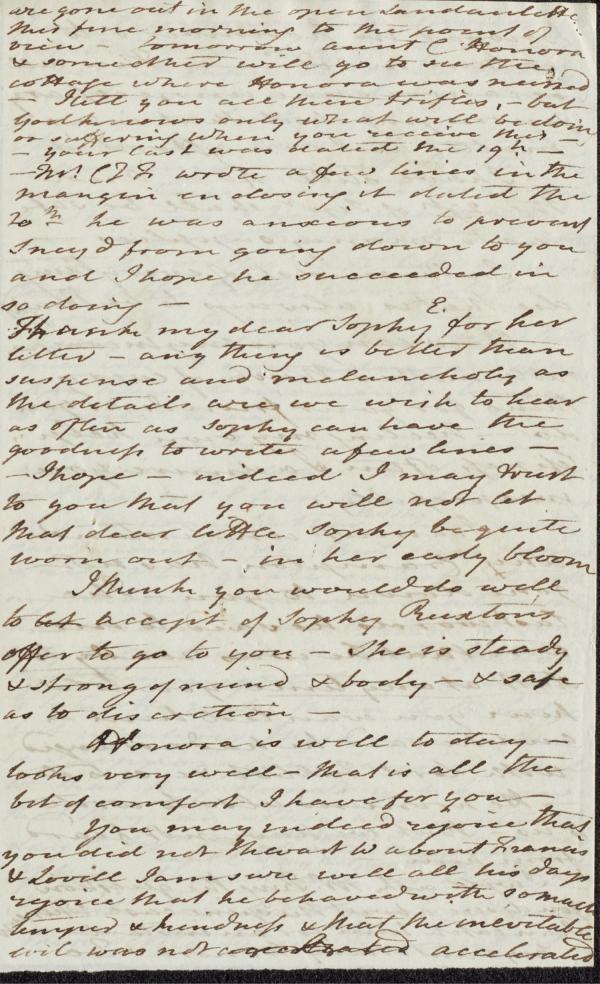 are gone out in the open Landaulette
this fine morning to the point of
view - tomorrow aunt C Honora
& some other will go to see the
cottage where Honora was nursed
- I tell you all these trifles, - but
God knows only what will be doing
or suffering when you receive this -
- your last was dated the 19th -
- Mr. C wrote a few lines in the
margin enclosing it dated the
20th he was anxious to prevent
Sneyd from going down to you
and I hope he succeeded in
so doing -
Thank my dear Sophy E. for her
letter - any thing is better than
suspense and melancholy as
the details are, we wish to hear
as often as Sophy can have the
goodness to write a few lines -
- I hope - indeed I may trust
to you that you will not let
that dear little Sophy be quite
worn out - in her early bloom
I think you would do well
to accept of Sophy Ruxton's
offer to go to you - She is steady
& strong of mind & body - & safe
as to discretion -
Honora is well to day -
looks very well - that is all the
bit of comfort I have for you -
You may indeed rejoice that
you did not thwart W about Francis
& Lovell I am sure will all his days
rejoice that he behaved with so much
temper & kindness & that the inevitable
evil was not accelerated